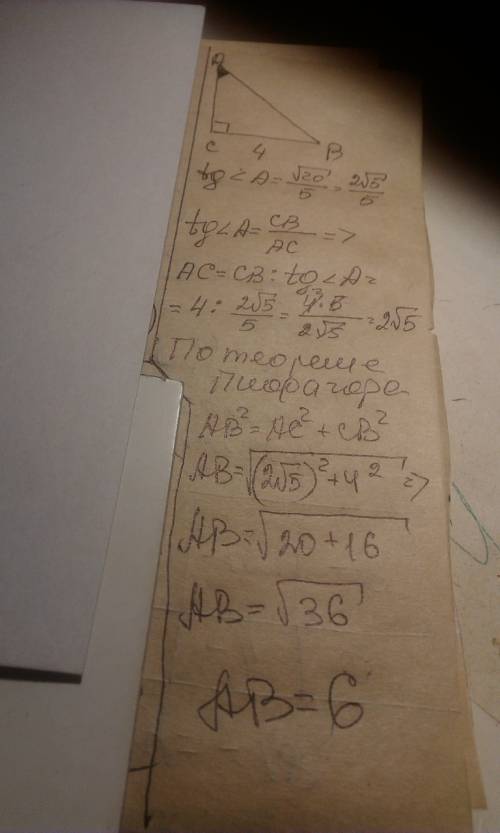 A
C 4 B
tg∠A = √20/5 = 2√5/5
tg∠A = CB/AC =>
AC = CB : tg∠A =
= 4 : 2√5/5 = 4·5/2√5 = 2√5
По теореме
Пифагора
AB² = AC² + CB²
AB = √(2√5)² + 4² =>
AB = √20 + 16
AB = √36
AB = 6